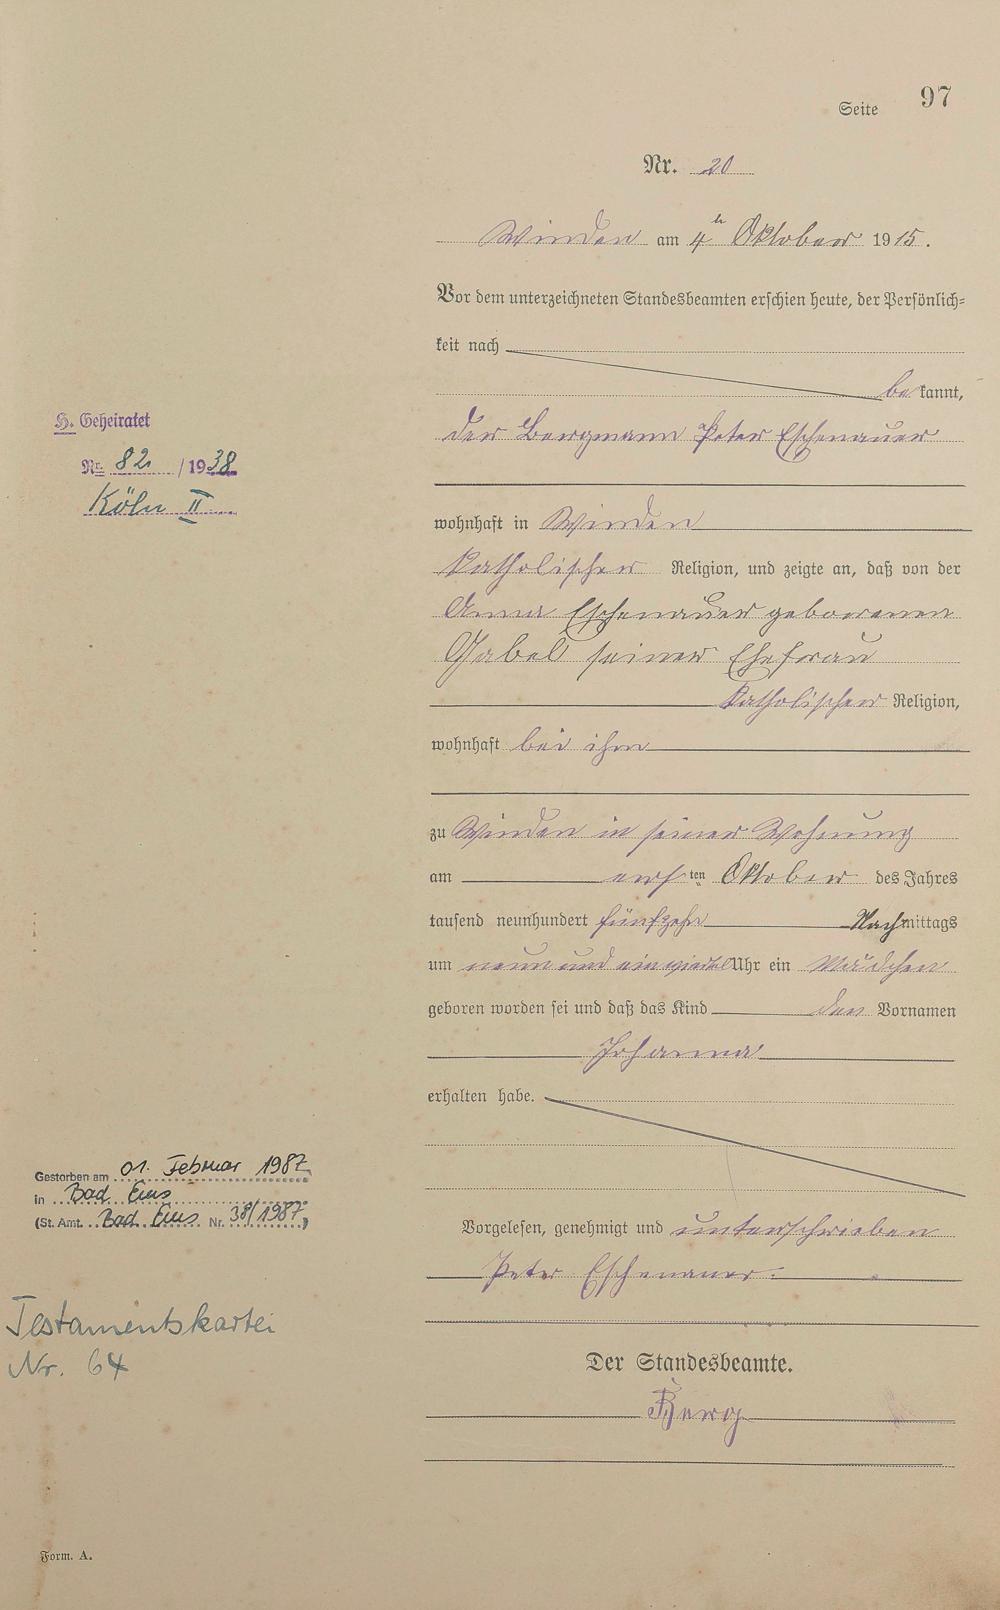 Seite 97
Nr. 20
Winden am 4ten Oktober 1915.
Vor dem unterzeichneten Standesbeamten erschien heute, der Persönlich=
keit nach
bekannt,
der Bergmann Peter Eschenauer
wohnhaft in Winden
katholischer Religion, und zeigte an, daß von der
Anna Eschenauer geborenen
Gabel seiner Ehefrau
katholischer Religion,
wohnhaft bei ihm
zu Winden in seiner Wohnung
am ersten Oktober des Jahres
tausend neunhundert fünfzehn Nachmittags
um neun und ein viertel Uhr ein Mädchen
geboren worden sei und daß das Kind den Vornamen
Johanna
erhalten habe.
Vorgelesen, genehmigt und unterschrieben
Peter Eschenauer.
Der Standesbeamte.
Berg
H. Geheiratet
Nr. 82 / 1938
Köln II
Gestorben am 01. Februar 1987
in Bad Ems
(St. Amt. Bad Ems Nr. 38/1987)
Testamentskartei
Nr. 64
Form. A.